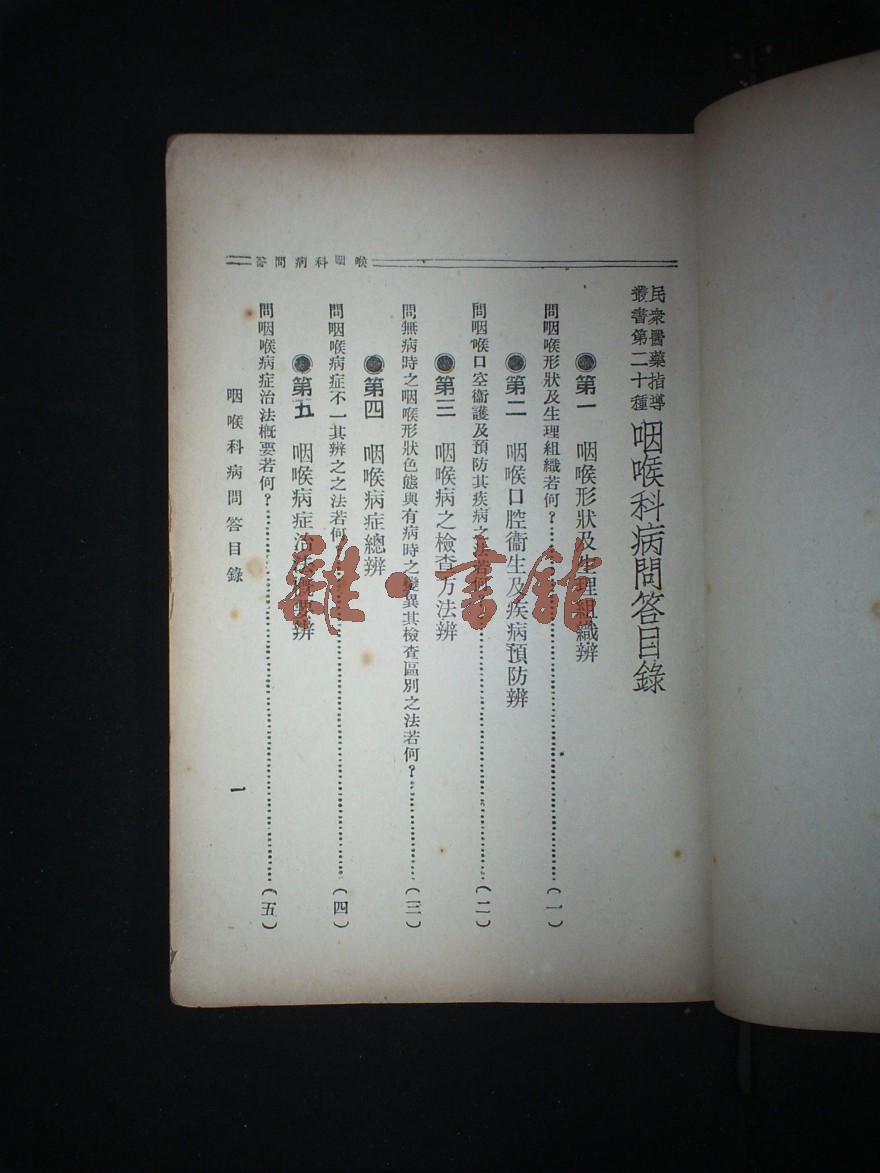 喉咽科病問答
民衆醫藥指導
叢書第二十種
咽喉科病問答目錄
●第一 咽喉形狀及生理組織辨
問咽喉形狀及生理組織若何?……(一)
●第二 咽喉口腔衞生及疾病預防辨
問咽喉口空衞護及預防其疾病之法若何?……(二)
●第三 咽喉病之檢查方法辨
問無病時之咽喉形狀色態與有病時之變異其檢查區別之法若何?……(三)
●第四 咽喉病症總辨
問咽喉病症不一其辨之之法若何……(四)
●第五 咽喉病症治法概要辨
問咽喉病症治法概要若何?……(五)
咽喉科病問答目錄
一
雜·書館